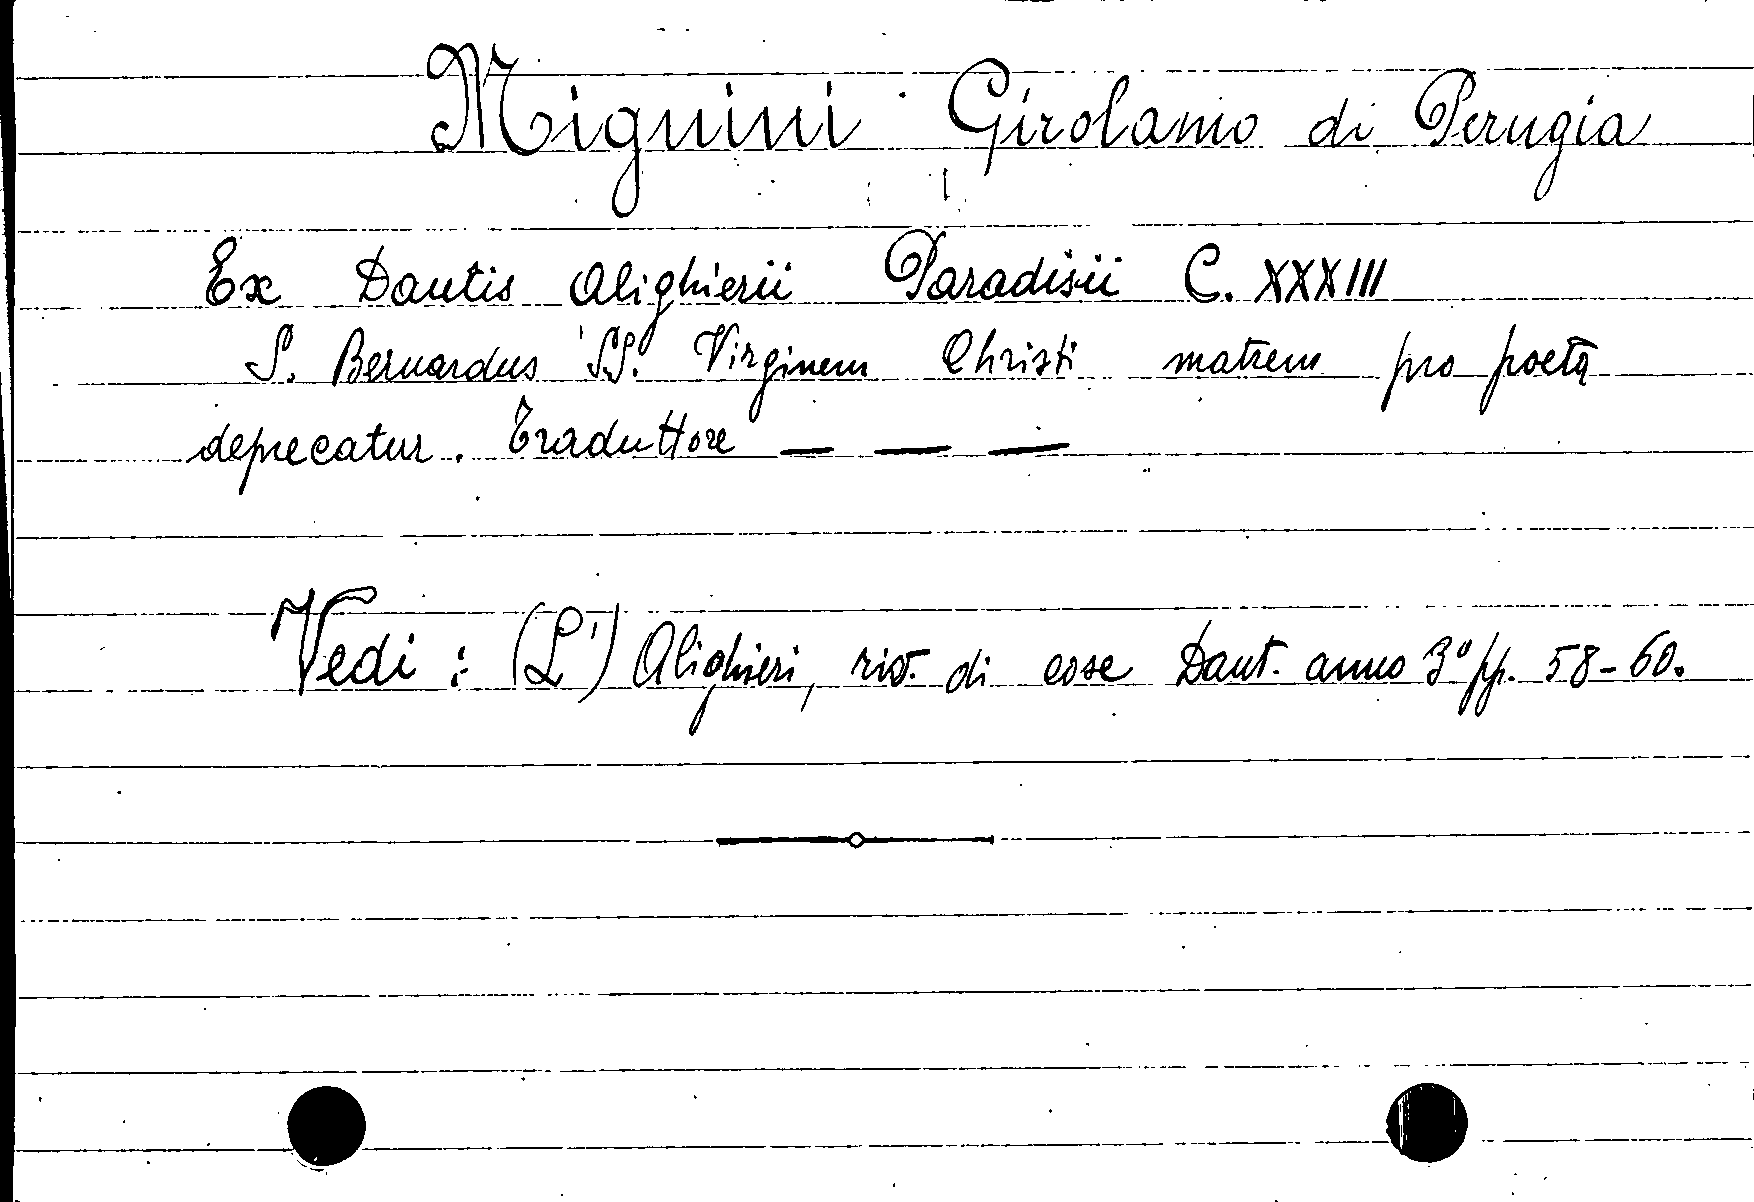 Mignini Girolamo di Perugia
Ex Dantis Alighierii Paradisii C. XXXIII
S. Bernardus SS. Virginem Christi matrem pro poeta
deprecatur. Traduttore — — —
Vedi : (L') Alighieri, riv. di cose Dant. anno 3º pp. 58-60.